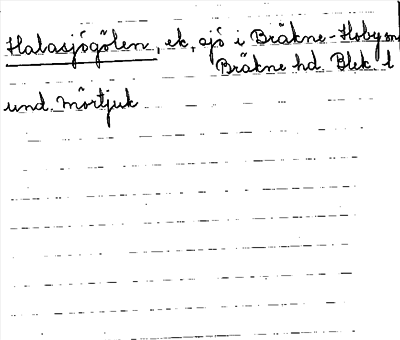 Halasjögölen, ek. sjö i Bräkne-Hoby sn,
Bräkne hd Blek. l
und. Mörtjuk